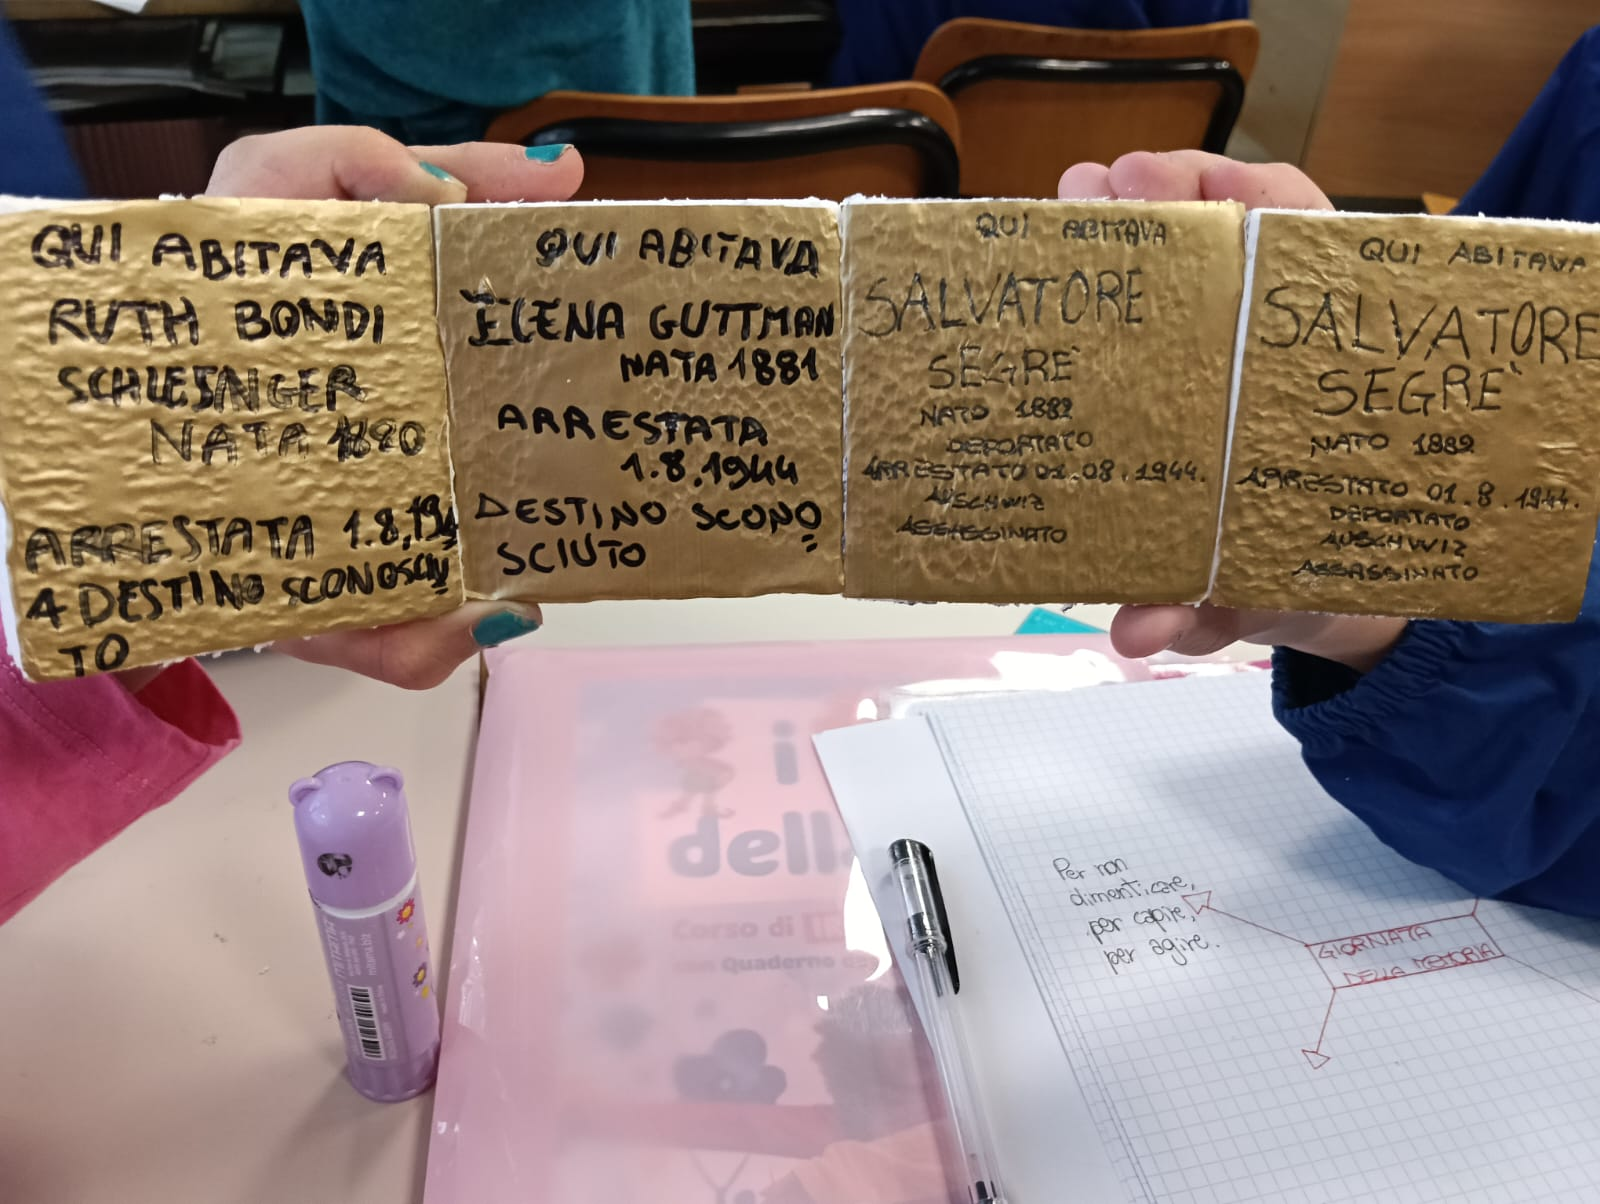 QUI ABITAVA
RUTH BONDI
SCHLESINGER
NATA 1880
ARRESTATA 1.8.194
4 DESTINO SCONOSCIU
TO
QUI ABITAVA
ELENA GUTTMAN
NATA 1881
ARRESTATA
1.8.1944
DESTINO SCONO
SCIUTO
QUI ABITAVA
SALVATORE
SEGRE`
NATO 1882
DEPORTATO
ARRESTATO 01.08.1944.
AUSCHWIZ
ASSASSINATO
QUI ABITAVA
SALVATORE
SEGRE`
NATO 1882
ARRESTATO 01.8.1944.
DEPORTATO
AUSCHWIZ
ASSASSINATO
i
dell
Corso di
Quaderno
mitama.biz
Per non
dimenticare,
per capire,
per agire.
GIORNATA
DELLA MEMORIA